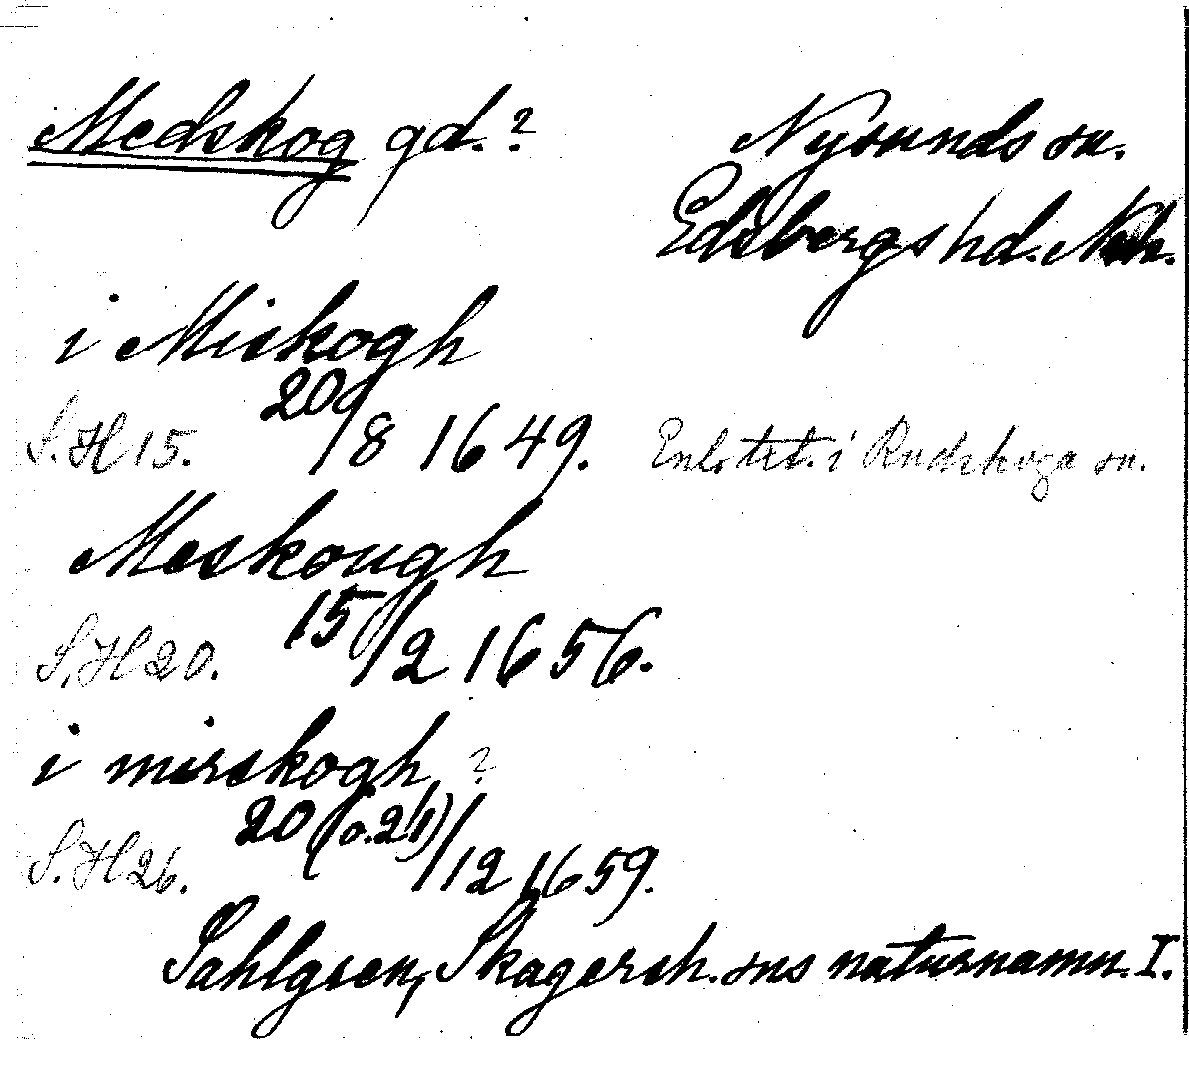 Medskog gd.? Nysunds sn.
Edsbergs hd. Nke.
i Miskogh
S.H 15. 20/8 1649. Enl. text. i Rudskoga sn.
Meskough
S.H 20. 15/2 1656.
i mirskogh ?
S.H 26. 20 (o. 21)/12 1659.
Sahlgren, Skagersh. sns naturnamn. I.